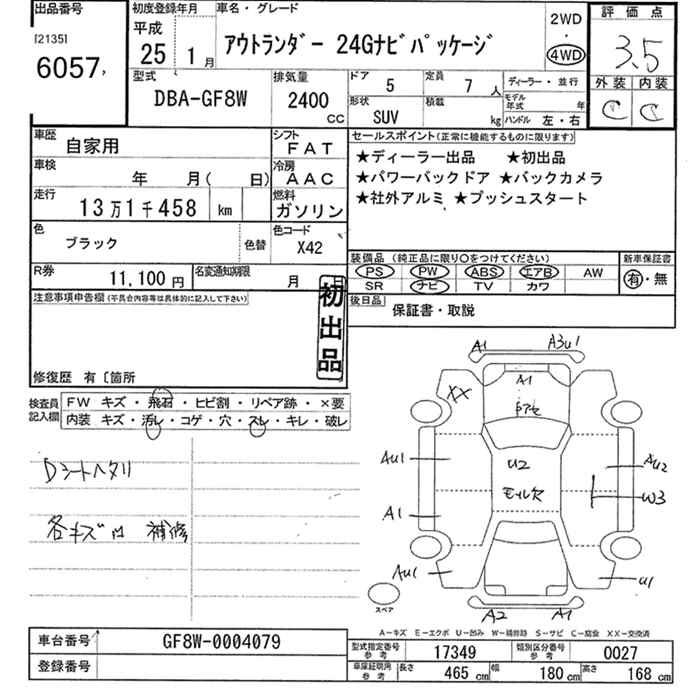 出品番号
[2135]
6057
初度登録年月
平成
25 1月
車名・グレード
アウトランダー 24Gナビパッケージ
2WD
・
4WD
評価点
3.5
外装 内装
C C
型式
DBA-GF8W
排気量
2400
CC
ドア
5
定員
7人
形状
SUV
積載
kg
ディーラー・並行
モデル年式 年
ハンドル 左・右
車歴
自家用
シフト
FAT
車検
年 月( 日)
冷房
AAC
走行
13万1千458 km
燃料
ガソリン
色
ブラック
色替
色コード
X42
R券
11,100円
名変通知期限
月
セールスポイント(正常に機能するものに限ります)
★ディーラー出品 ★初出品
★パワーバックドア ★バックカメラ
★社外アルミ ★プッシュスタート
装備品 (純正品に限り○をつけてください)
PS PW ABS エアB AW
SR ナビ TV カワ
新車保証書
有・無
後日品
保証書・取説
注意事項申告欄(不具合内容等は具体的に記入して下さい)
初出品
修復歴 有〔箇所
検査員記入欄
FW キズ・飛石・ヒビ割・リペア跡・×要
内装 キズ・汚レ・コゲ・穴・スレ・キレ・破レ
Dシートヘタリ
各キズ凹 補修
A1
A3U1
XX
A1
U2
モール欠
AU1
AU2
W3
A1
AU1
U1
スペア
A2
A1
A-キズ E-エクボ U-凹み W-補修跡 S-サビ C-腐食 XX-交換済
車台番号
GF8W-0004079
登録番号
型式指定番号
参考
17349
類別区分番号
参考
0027
車庫証明用
参考
長さ
465 cm
幅
180 cm
高さ
168 cm